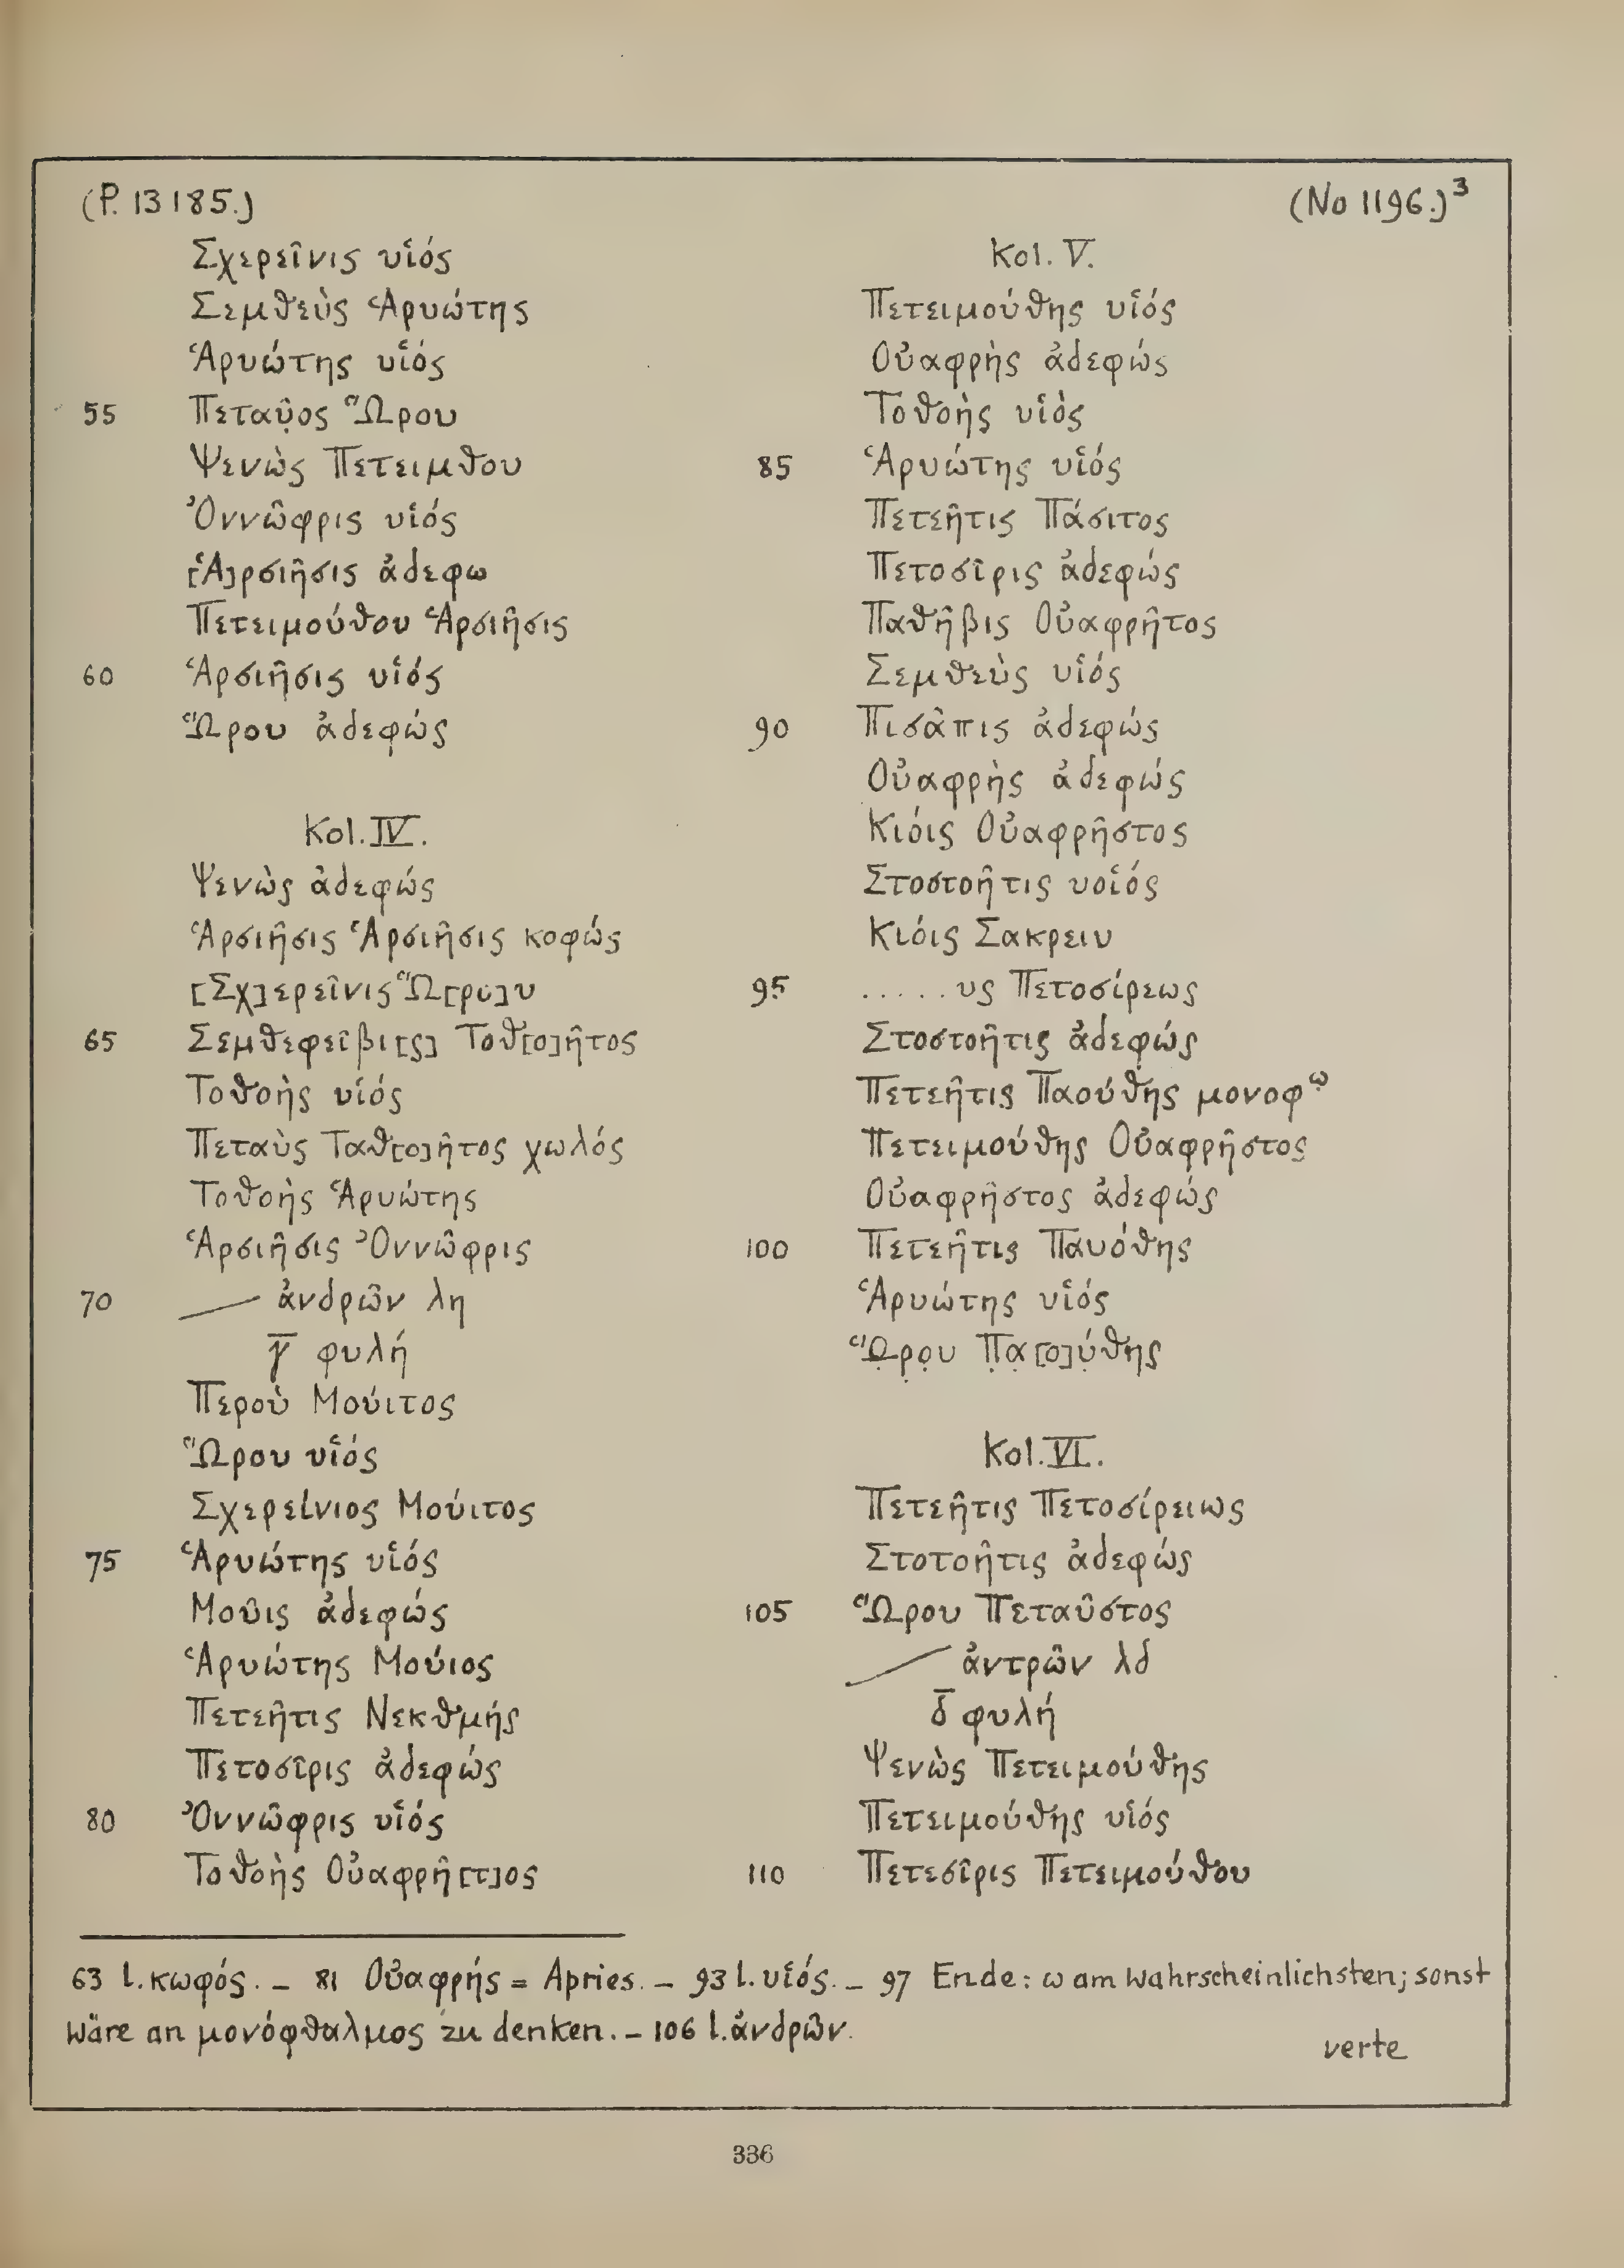 (P. 13185.)
(No 1196.)³
Σχερεῖνις υἱός
Σεμθεὺς Ἁρυώτης
Ἁρυώτης υἱός
55 Πεταῦ̣ος Ὥρου
Ψενὼς Πετειμθου
Ὀννῶφρις υἱός
[Ἁ]ρσιῆσις ἀδεφω
Πετειμούθου Ἁρσιῆσις
60 Ἁρσιῆσις υἱός
Ὥρου ἀδεφώς
Kol. IV.
Ψενὼς ἀδεφώς
Ἁρσιῆσις Ἁρσιῆσις κοφώς
[Σχ]ερεῖνις Ὥ[ρο]υ
65 Σεμθεφεῖβι[ς] Τοθ[ο]ῆτος
Τοθοὴς υἱός
Πεταὺς Ταθ[ο]ῆτος χωλός
Τοθοὴς Ἁρυώτης
Ἁρσιῆσις Ὀννῶφρις
70 ― ἀνδρῶν λη
γ̅ φυλή
Περοὺ Μούιτος
Ὥρου υἱός
Σχερείνιος Μούιτος
75 Ἁρυώτης υἱός
Μοῦις ἀδεφώς
Ἁρυώτης Μούιος
Πετεῆτις Νεκθμής
Πετοσῖρις ἀδεφώς
80 Ὀννῶφρις υἱός
Τοθοὴς Οὐαφρῆ[τ]ος
Kol. V.
Πετειμούθης υἱός
Οὐαφρὴς ἀδεφώς
Τοθοὴς υἱός
85 Ἁρυώτης υἱός
Πετεῆτις Πάσιτος
Πετοσῖρις ἀδεφώς
Παθῆβις Οὐαφρῆτος
Σεμθεὺς υἱός
90 Πισᾶπις ἀδεφώς
Οὐαφρὴς ἀδεφώς
Κιόις Οὐαφρῆστος
Στοστοῆτις υοἱός
Κιόις Σακρειν
95 .....υς Πετοσίρεως
Στοστοῆτις ἀδεφώς
Πετεῆτις Παούθης μονοφ^ω̣
Πετειμούθης Οὐαφρῆστος
Οὐαφρῆστος ἀδεφώς
100 Πετεῆτις Παυόθης
Ἁρυώτης υἱός
Ὥ̣ρ̣ο̣υ Π̣α̣[ο]ύ̣θης
Kol. VI.
Πετεῆτις Πετοσίρειως
Στοτοῆτις ἀδεφώς
105 Ὥρου Πεταῦστος
― ἀντρῶν λδ
δ̅ φυλή
Ψενὼς Πετειμούθης
Πετειμούθης υἱός
110 Πετεσῖρις Πετειμούθου
63 l. κωφός. – 81 Οὐαφρής = Apries. – 93 l. υἱός. – 97 Ende: ω am wahrscheinlichsten; sonst
wäre an μονόφθαλμος zu denken. – 106 l. ἀνδρῶν.
verte
336